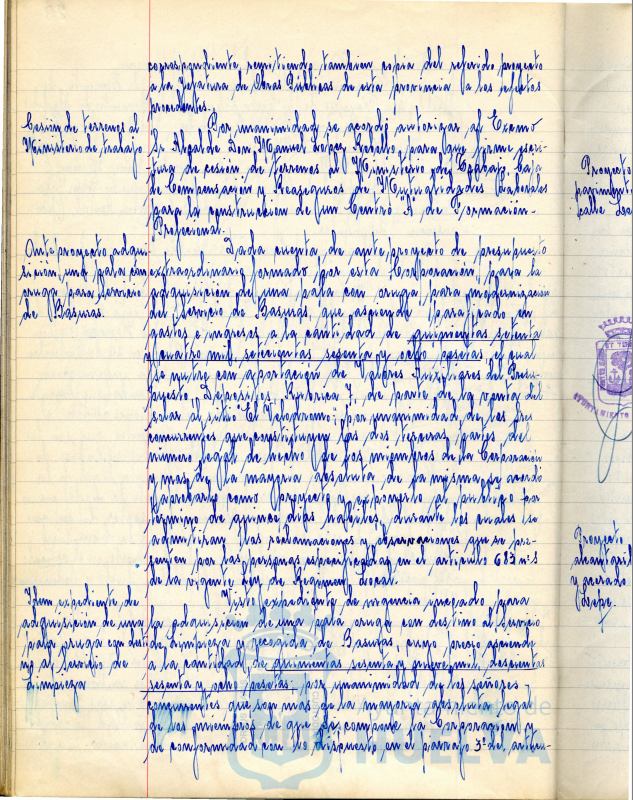 correspondiente remitiendo tambien copia del referido proyecto
a la Jefatura de Obras Públicas de esta provincia a los efectos
procedentes.
Cesión de terrenos al
Ministerio de trabajo
Por unanimidad se acordó autorizar al Excmo
Sr Alcalde Don Manuel López Rebollo para que firme escri-
tura de cesión de terrenos al Ministerio del Trabajo, Caja
de Compensación y Reaseguros de Mutualidades Laborales
para la construcción de un Centro "A" de Formación
Profesional.
Anteproyecto adqui-
sición una pala con
oruga para Servicio
de Basuras.
Dada cuenta de anteproyecto de presupuesto
extraordinario formado por esta Corporación para la
adquisición de una pala con oruga, para modernización
del Servicio de Basuras, que asciende paralizado en
gastos e ingresos a la cantidad de quinientas setenta
y cuatro mil, setecientas sesenta y ocho pesetas, el cual
se nutre con aportación de Valores Auxiliares del Presu-
puesto, Depósitos, Rubrica I, de parte de la venta del
solar al sitio "El Velodromo"; por unanimidad de los Srs
concurrentes que constituyen las dos terceras partes del
número legal de hecho de los miembros de la Corporación
y mas de la mayoria absoluta de la misma, se acordó
aprobarlo como proyecto y exponerlo al publico por
término de quince dias habiles, durante los cuales se
admitiran las reclamaciones y observaciones que se pre-
senten por las personas especificadas en el articulo 683 nº 3
de la vigente Ley de Regimen Local.
Idem expediente de
adquisición de una
pala oruga con desti-
no al Servicio de
Limpieza
Visto expediente de urgencia incoado para
la adquisición de una pala oruga con destino al Servicio
de Limpieza y recogida de Basuras, cuyo precio asciende
a la cantidad de quinientas sesenta y nueve mil, doscientas
sesenta y ocho pesetas: por unanimidad de los señores
concurrentes que son mas de la mayoria absoluta legal
de los miembros de que se compone la Corporación
de conformidad con lo dispuesto en el parrafo 3º del articu-
Proyecto
pavimento
calle
Proyecto
alcantaril
y acerado
Lepe.
HUELVA